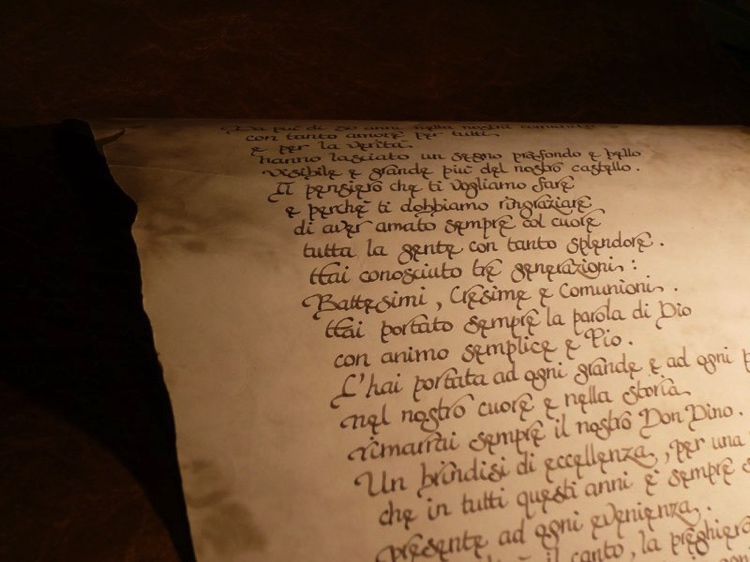 Da piu' di 50 anni nella nostra comunità
con tanto amore per tutti
e per la verità.
hanno lasciato un segno profondo e bello
visibile e grande piu' del nostro castello.
Il pensiero che ti vogliamo fare
e perchè ti dobbiamo ringraziare
di aver amato sempre col cuore
tutta la gente con tanto splendore.
Hai conosciuto tre generazioni:
Battesimi, Cresime e Comunioni.
Hai portato sempre la parola di Dio
con animo semplice e Pio.
L'hai portata ad ogni grande e ad ogni p
nel nostro cuore e nella storia
rimarrai sempre il nostro Don Dino.
Un brindisi di eccellenza, per una
che in tutti questi anni è sempre s
presente ad ogni evenienza.
il canto, la preghiera